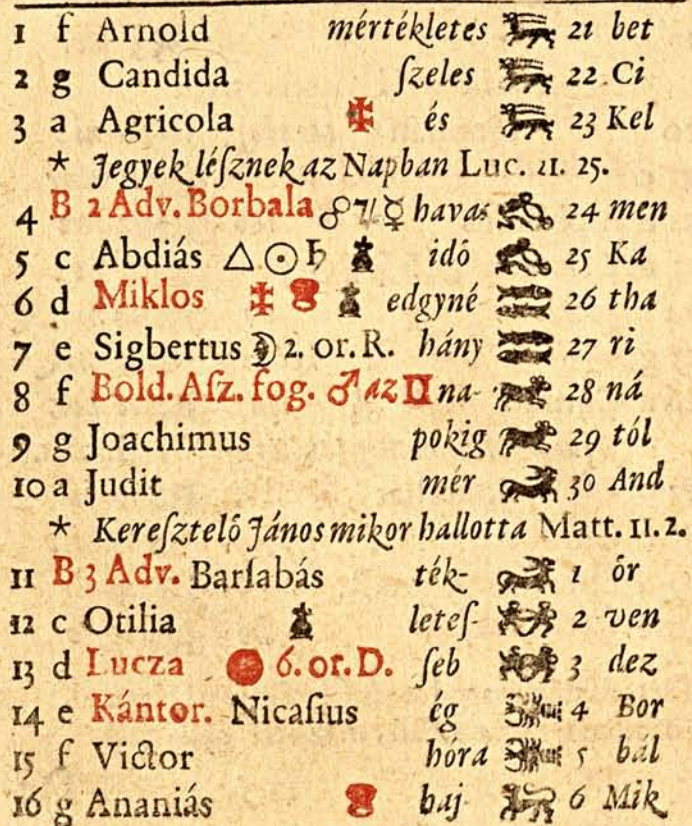 1 f Arnold mértékletes 21 bet
2 g Candida ſzeles 22 Ci
3 a Agricola és 23 Kel
* Jegyek léſznek az Napban Luc. 21. 25.
4 B 2 Adv. Borbala ☍♃☿ havas 24 men
5 c Abdiás △☉♄ idö 25 Ka
6 d Miklos edgyné 26 tha
7 e Sigbertus ☽ 2. or. R. hány 27 ri
8 f Bold. Aſz. fog. ♂ az ♊ na- 28 ná
9 g Joachimus pokig 29 tól
10 a Judit mér 30 And
* Kereſztelö János mikor hallotta Matt. 11. 2.
11 B 3 Adv. Barſabás ték- 1 ör
12 c Otilia leteſ- 2 ven
13 d Lucza 6. or. D. ſeb 3 dez
14 e Kántor. Nicaſius ég 4 Bor
15 f Victor hóra 5 bál
16 g Ananiás baj 6 Mik